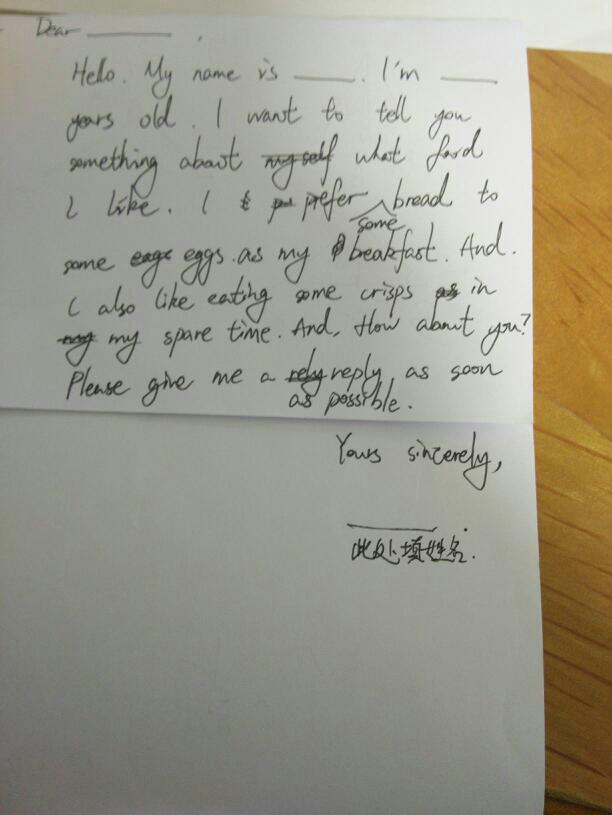 Dear ______ .
Hello. My name is ____. I'm ____
years old. I want to tell you
something about myself what food
I like. I prefer some bread to
some eggs as my breakfast. And.
I also like eating some crisps as in
my my spare time. And, How about you?
Please give me a rely reply as soon
as possible.
Yours sincerely,
______.
此处填姓名.